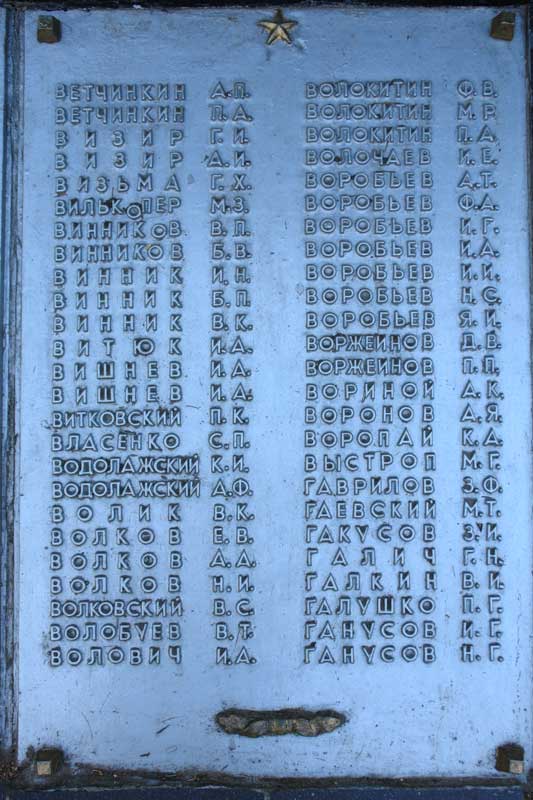 ВЕТЧИНКИН А.П.
ВЕТЧИНКИН П.А.
ВИЗИР Г.И.
ВИЗИР Д.И.
ВИЗЬМА Г.Х.
ВИЛЬКОПЕР М.З.
ВИННИКОВ В.П.
ВИННИКОВ Б.В.
ВИННИК И.Н.
ВИННИК Б.П.
ВИННИК В.К.
ВИТЮК И.А.
ВИШНЕВ И.А.
ВИШНЕВ И.А.
ВИТКОВСКИЙ П.К.
ВЛАСЕНКО С.П.
ВОДОЛАЖСКИЙ К.И.
ВОДОЛАЖСКИЙ А.Ф.
ВОЛИК В.К.
ВОЛКОВ Е.В.
ВОЛКОВ А.А.
ВОЛКОВ Н.И.
ВОЛКОВСКИЙ В.С.
ВОЛОБУЕВ В.Т.
ВОЛОВИЧ И.А.
ВОЛОКИТИН Ф.В.
ВОЛОКИТИН М.Р.
ВОЛОКИТИН П.А.
ВОЛОЧАЕВ И.Е.
ВОРОБЬЕВ А.Т.
ВОРОБЬЕВ Ф.А.
ВОРОБЬЕВ И.Г.
ВОРОБЬЕВ И.А.
ВОРОБЬЕВ И.И.
ВОРОБЬЕВ Н.С.
ВОРОБЬЕВ Я.И.
ВОРЖЕИНОВ Д.В.
ВОРЖЕИНОВ П.П.
ВОРИНОЙ А.К.
ВОРОНОВ А.Я.
ВОРОПАЙ К.А.
ВЫСТРОП М.Г.
ГАВРИЛОВ З.Ф.
ГАЕВСКИЙ М.Т.
ГАКУСОВ З.И.
ГАЛИЧ Г.Н.
ГАЛКИН В.И.
ГАЛУШКО П.Г.
ГАНУСОВ И.Г.
ГАНУСОВ Н.Г.